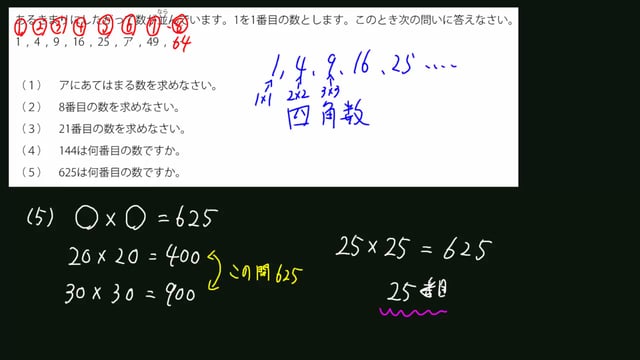 あるきまりにしたがって数が並んでいます。1を1番目の数とします。このとき次の問いに答えなさい。
なら
① ② ③ ④ ⑤ ⑥ ⑦ ⑧
1 , 4 , 9 , 16 , 25 , ア , 49 , 64
(1) アにあてはまる数を求めなさい。
(2) 8番目の数を求めなさい。
(3) 21番目の数を求めなさい。
(4) 144は何番目の数ですか。
(5) 625は何番目の数ですか。
1, 4, 9, 16, 25 ....
1×1 2×2 3×3
四角数
(5) ○×○=625
20×20=400
30×30=900
この間625
25×25=625
25番目